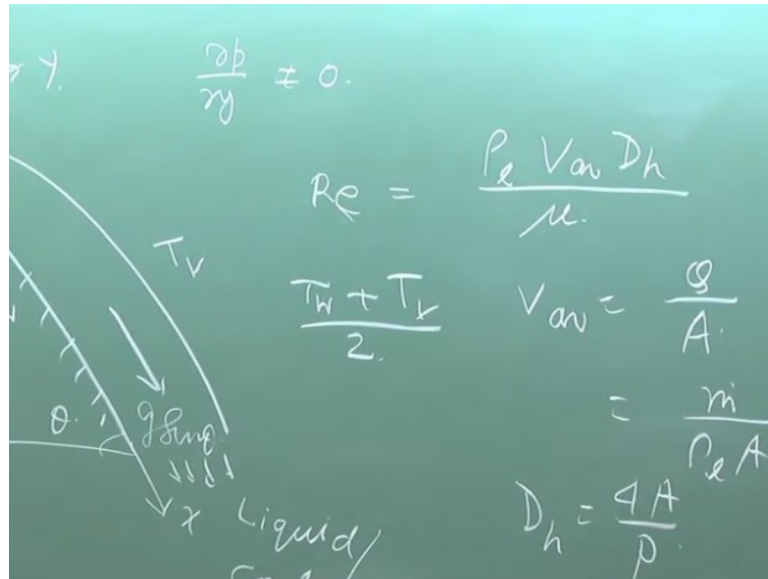 Y.
∂p/∂y ≠ 0.
Re = ρ_l V_av D_h / μ.
T_v
(T_w + T_v) / 2.
V_av = Q / A.
= ṁ / ρ_l A
θ.
g Sinθ.
x
Liquid/
D_h = 4A / P.